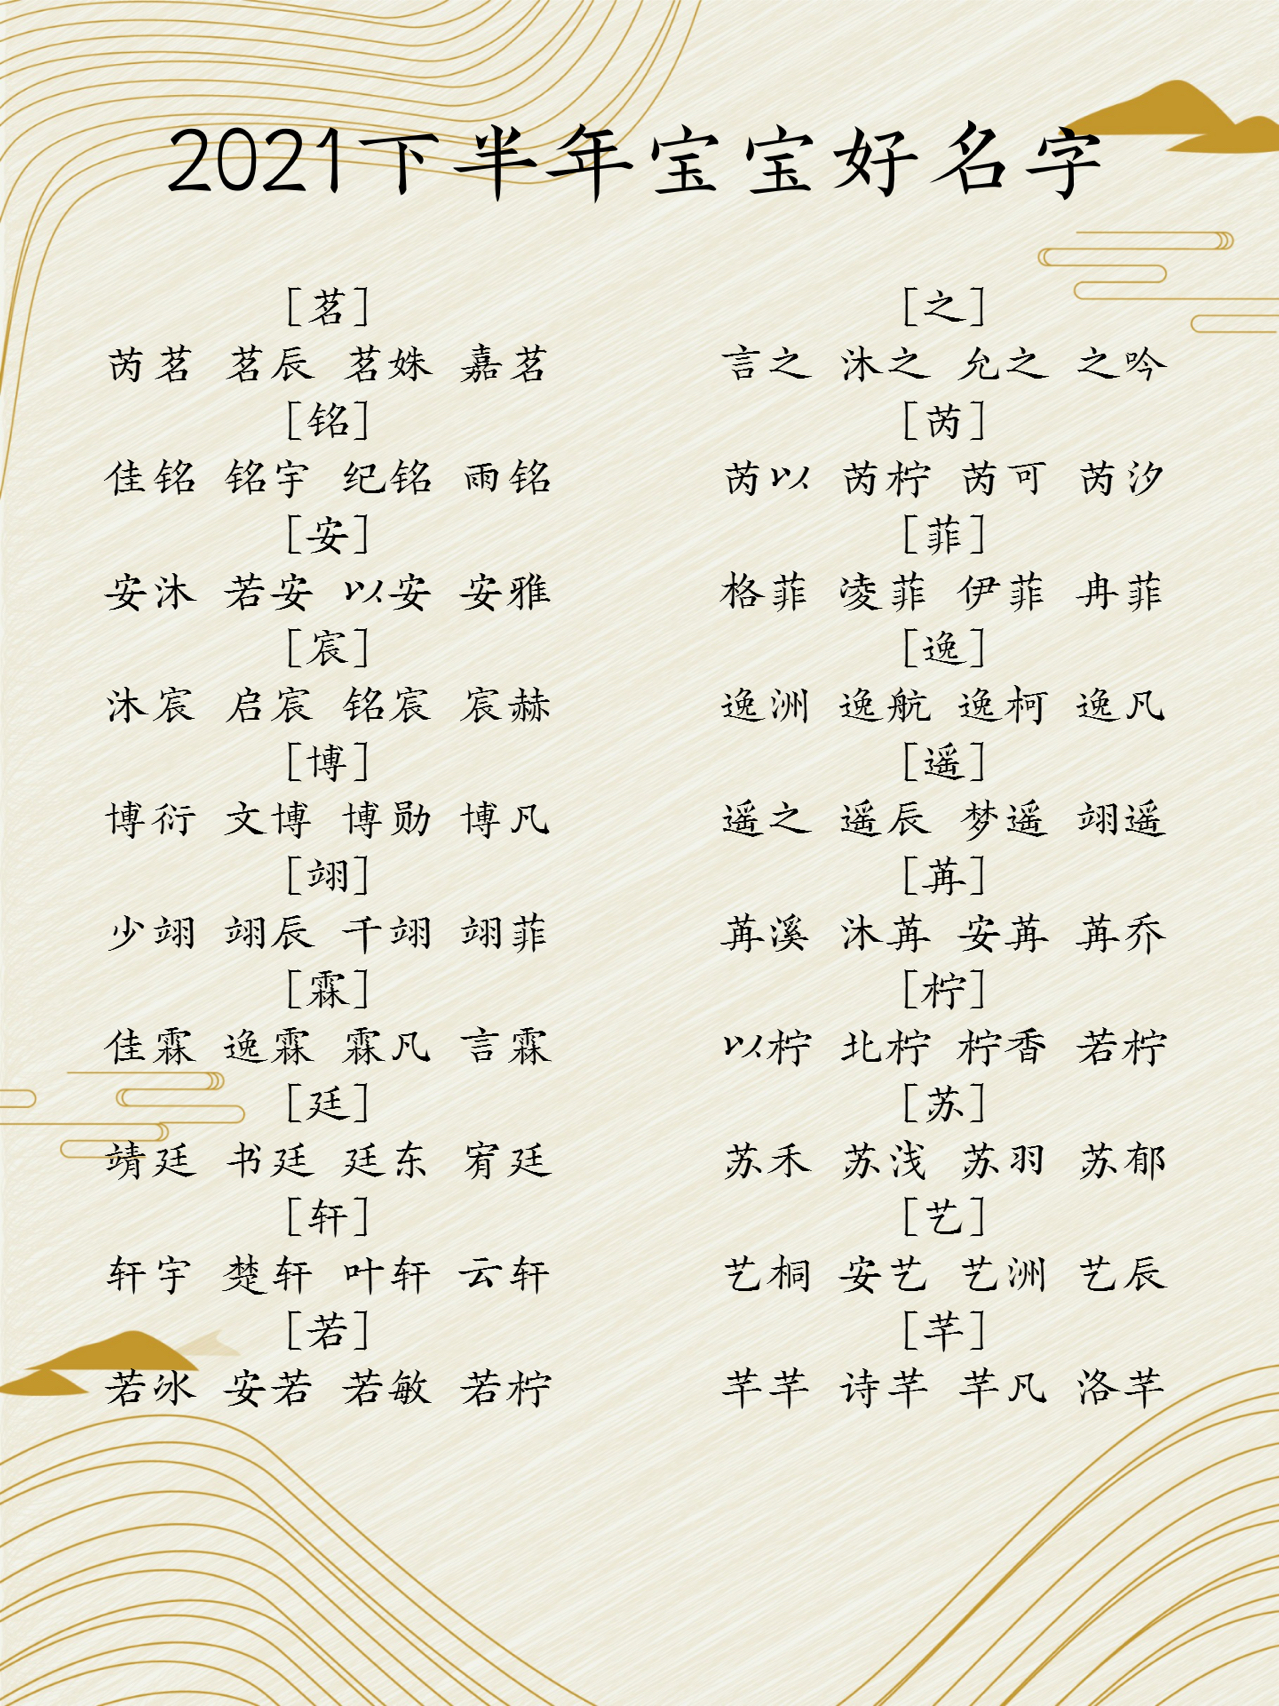 2021下半年宝宝好名字
[茗]
芮茗 茗辰 茗姝 嘉茗
[铭]
佳铭 铭宇 纪铭 雨铭
[安]
安沐 若安 以安 安雅
[宸]
沐宸 启宸 铭宸 宸赫
[博]
博衍 文博 博勋 博凡
[翊]
少翊 翊辰 千翊 翊菲
[霖]
佳霖 逸霖 霖凡 言霖
[廷]
靖廷 书廷 廷东 宥廷
[轩]
轩宇 楚轩 叶轩 云轩
[若]
若冰 安若 若敏 若柠
[之]
言之 沐之 允之 之吟
[芮]
芮以 芮柠 芮可 芮汐
[菲]
格菲 凌菲 伊菲 冉菲
[逸]
逸洲 逸航 逸柯 逸凡
[遥]
遥之 遥辰 梦遥 翊遥
[苒]
苒溪 沐苒 安苒 苒乔
[柠]
以柠 北柠 柠香 若柠
[苏]
苏禾 苏浅 苏羽 苏郁
[艺]
艺桐 安艺 艺洲 艺辰
[芊]
芊芊 诗芊 芊凡 洛芊